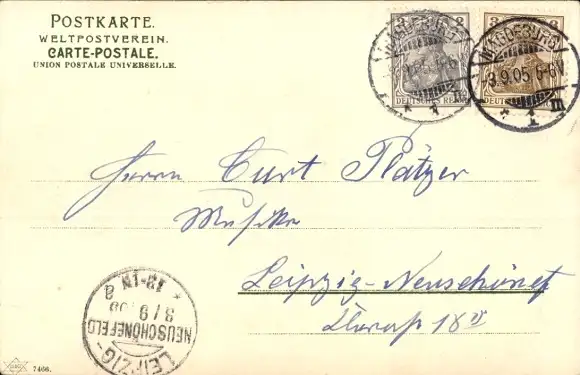 POSTKARTE.
WELTPOSTVEREIN.
CARTE-POSTALE.
UNION POSTALE UNIVERSELLE.
3 3
DEUTSCHES REICH
3 3
DEUTSCHES REICH
MAGDEBURG
* 1 m
MAGDEBURG
3.9.05 5-6
* 1 m
Herrn Curt Plätzer
Musiker
Leipzig-Neuschönef
LEIPZIG-
NEUSCHÖNEFELD
3/9
12-1N
7466.